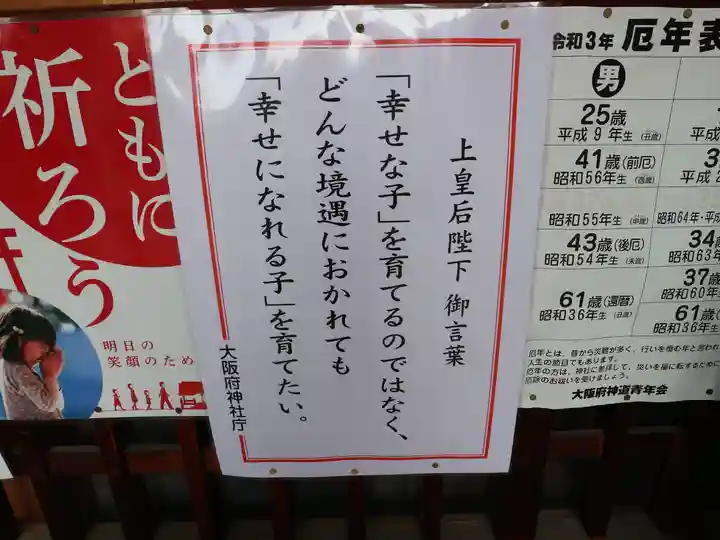 ともに
祈ろう
明日の
笑顔のため
上皇后陛下 御言葉
「幸せな子」を育てるのではなく、
どんな境遇におかれても
「幸せになれる子」を育てたい。
大阪府神社庁
令和3年 厄年表
男
25歳
平成9年生(丑歳)
41歳(前厄)
昭和56年生(酉歳)
昭和55年生(申歳)
43歳(後厄)
昭和54年生(未歳)
61歳(還暦)
昭和36年生(丑歳)
平成2
昭和64年・平
34歳
昭和63年
37歳
昭和60年
61歳(
昭和36年
厄年とは、昔から災難が多く、行いを慎む年と言われ
人生の節目でもあります。
厄年の方は、神社に参拝して、災いを福に転するために
厄除のお祓いを受けましょう。
大阪府神道青年会